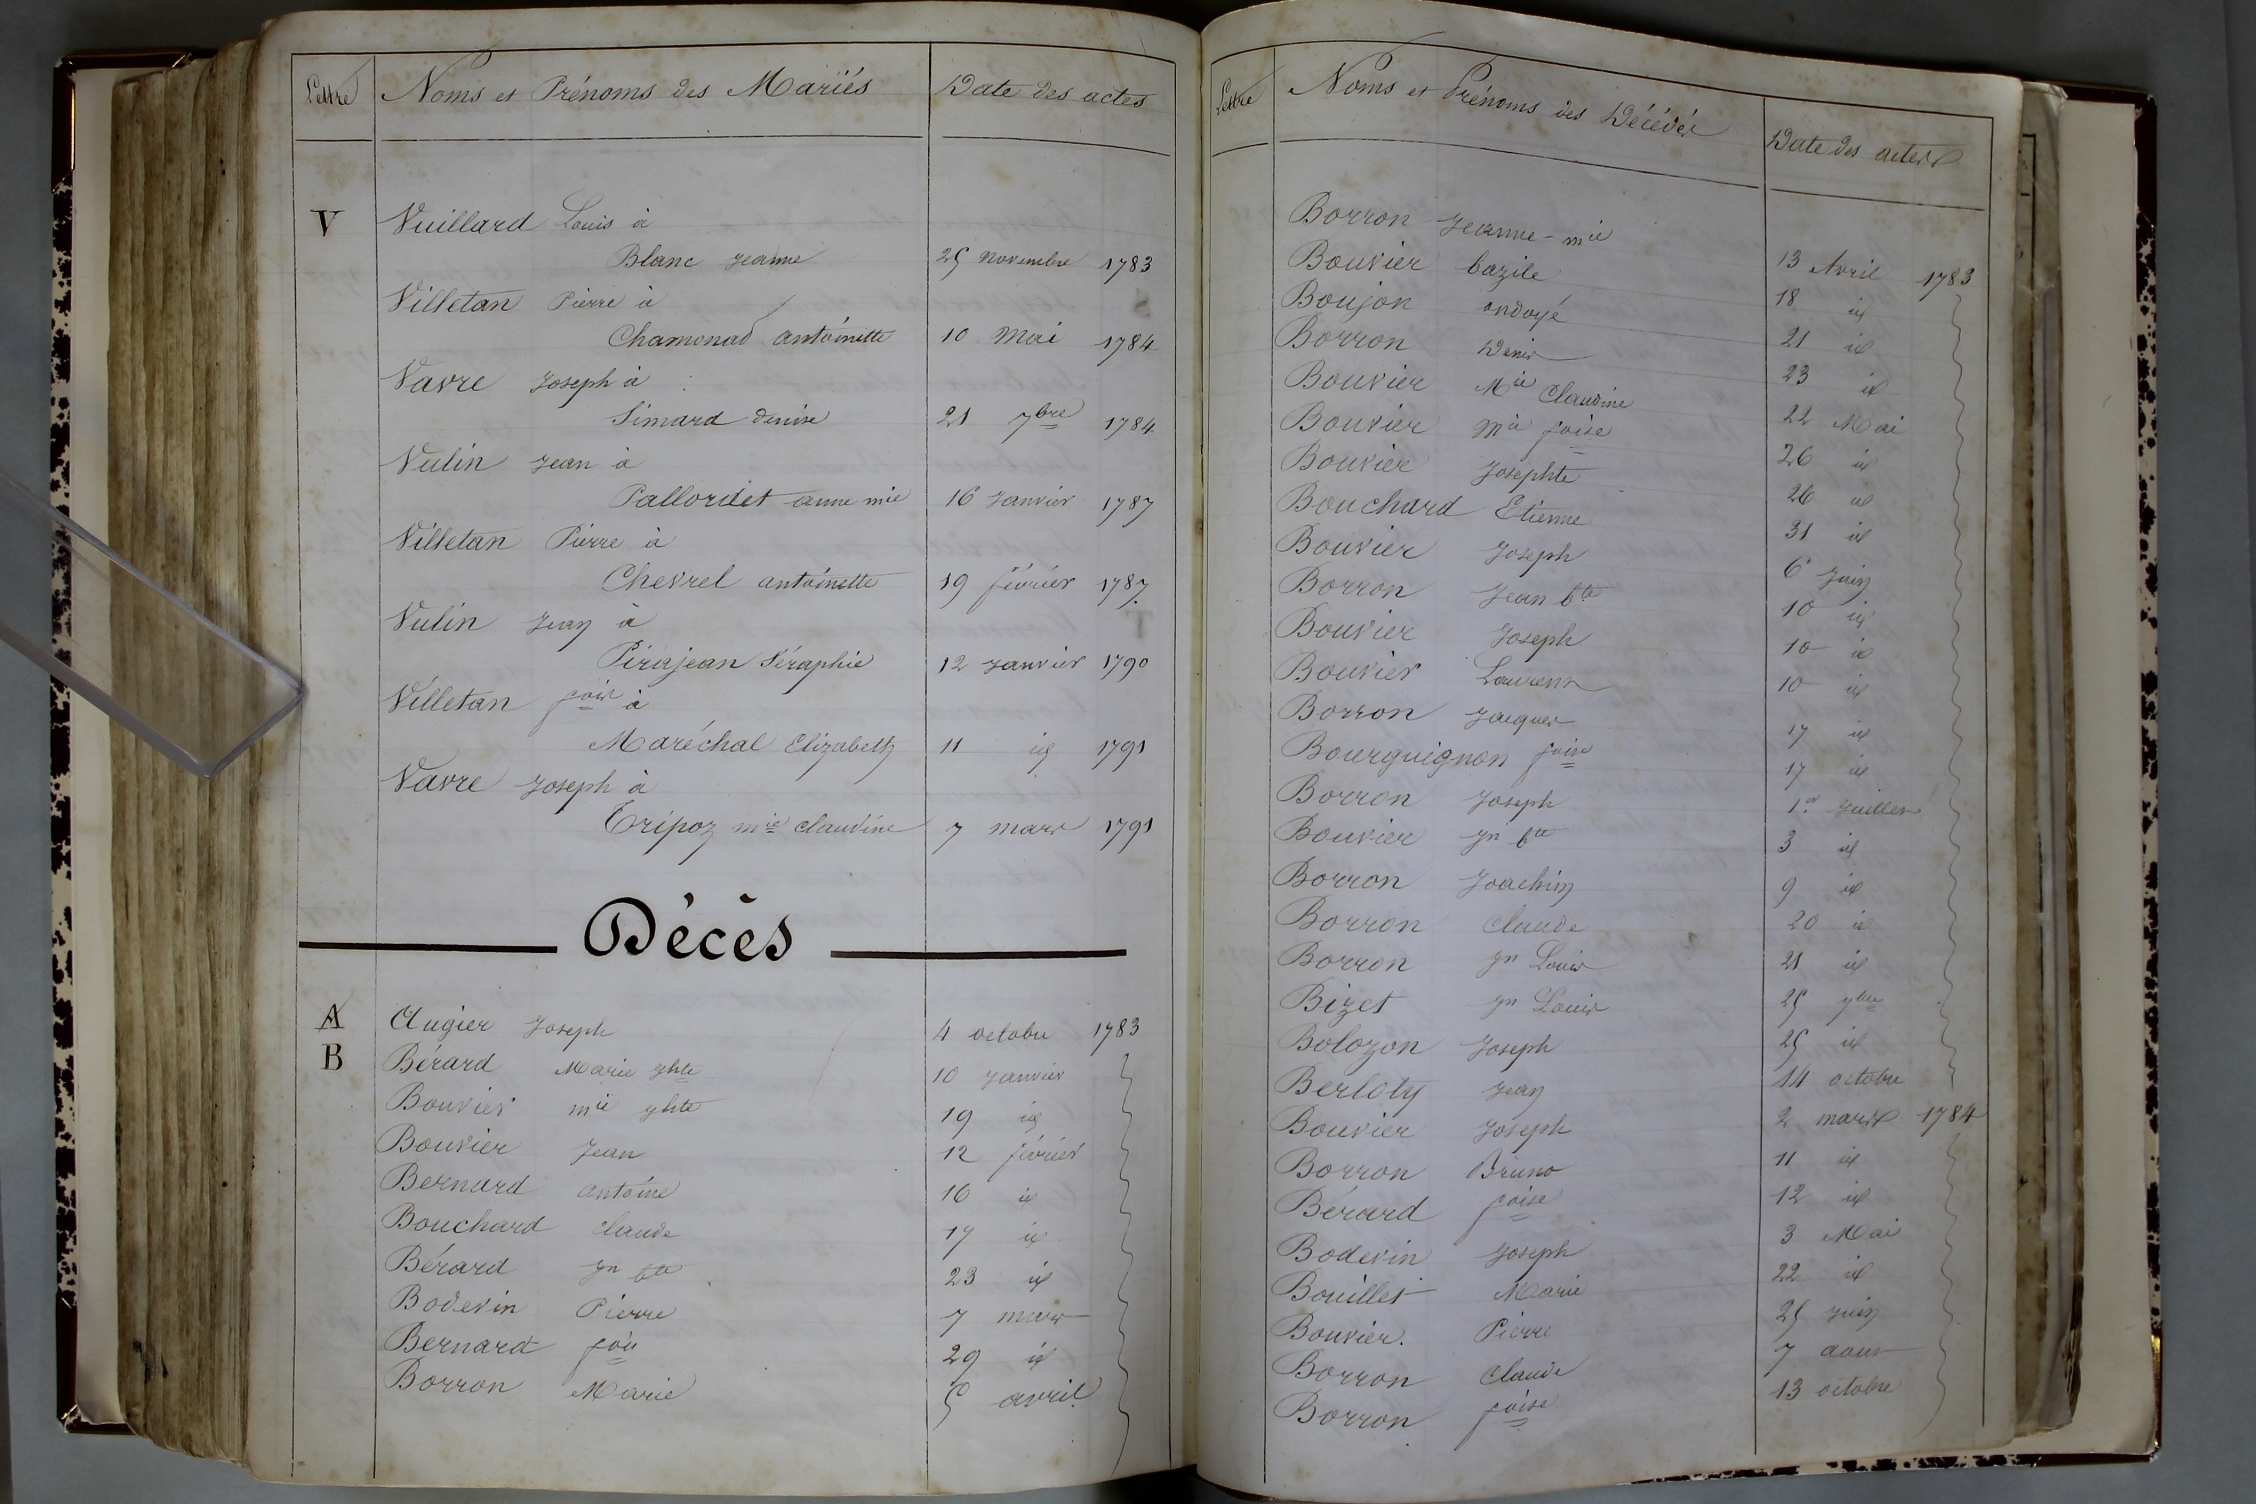 Lettre Noms et Prénoms des Mariés Date des actes
V Vuillard Louis à
Blanc Jeanne 25 novembre 1783
Villetan Pierre à
Chamonad antoinette 10 Mai 1784
Vavre Joseph à
Simard denise 21 7bre 1784
Vulin Jean à
Pallordet anne mie 16 Janvier 1787
Villetan Pierre à
Chevrel antoinette 19 février 1787.
Vulin Jean à
Pirajean Séraphie 12 Janvier 1790
Villetan fois à
Maréchal Elizabeth 11 id 1791
Vavre Joseph à
Tripoz mie claudine 7 mars 1791
Décès
A Augier Joseph 4 octobre 1783
B Bérard Marie jhte 10 Janvier
Bouvier mie jhte 19 id
Bouvier Jean 12 février
Bernard antoine 16 id
Bouchard claude 17 id
Bérard jn bte 23 id
Bodevin Pierre 7 mars
Bernard fois 29 id
Borron Marie 5 avril
Lettre Noms et Prénoms des Décédés Date des actes
Borron Jeanne-mie 13 Avril 1783
Bouvier bazile 18 id
Boujon ondoyé 21 id
Borron Denis 23 id
Bouvier Mie Claudine 22 Mai
Bouvier Mie foise 26 id
Bouvier Josephte 26 id
Bouchard Etienne 31 id
Bouvier Joseph 6 Juin
Borron Jean bte 10 id
Bouvier Joseph 10 id
Bouvier Laurent 10 id
Borron Jacques 17 id
Bourguignon foise 17 id
Borron Joseph 1er Juillet
Bouvier jn bte 3 id
Borron Joachim 9 id
Borron Claude 20 id
Borron jn Louis 21 id
Bizet jn Louis 25 7bre
Bolozon Joseph 25 id
Berloty Jean 14 octobre
Bouvier Joseph 2 mars 1784
Borron Bruno 11 id
Bérard foise 12 id
Bodevin Joseph 3 Mai
Bouillet Marie 22 id
Bouvier. Pierre 25 Juin
Borron Claude 7 aout
Borron foise 13 octobre